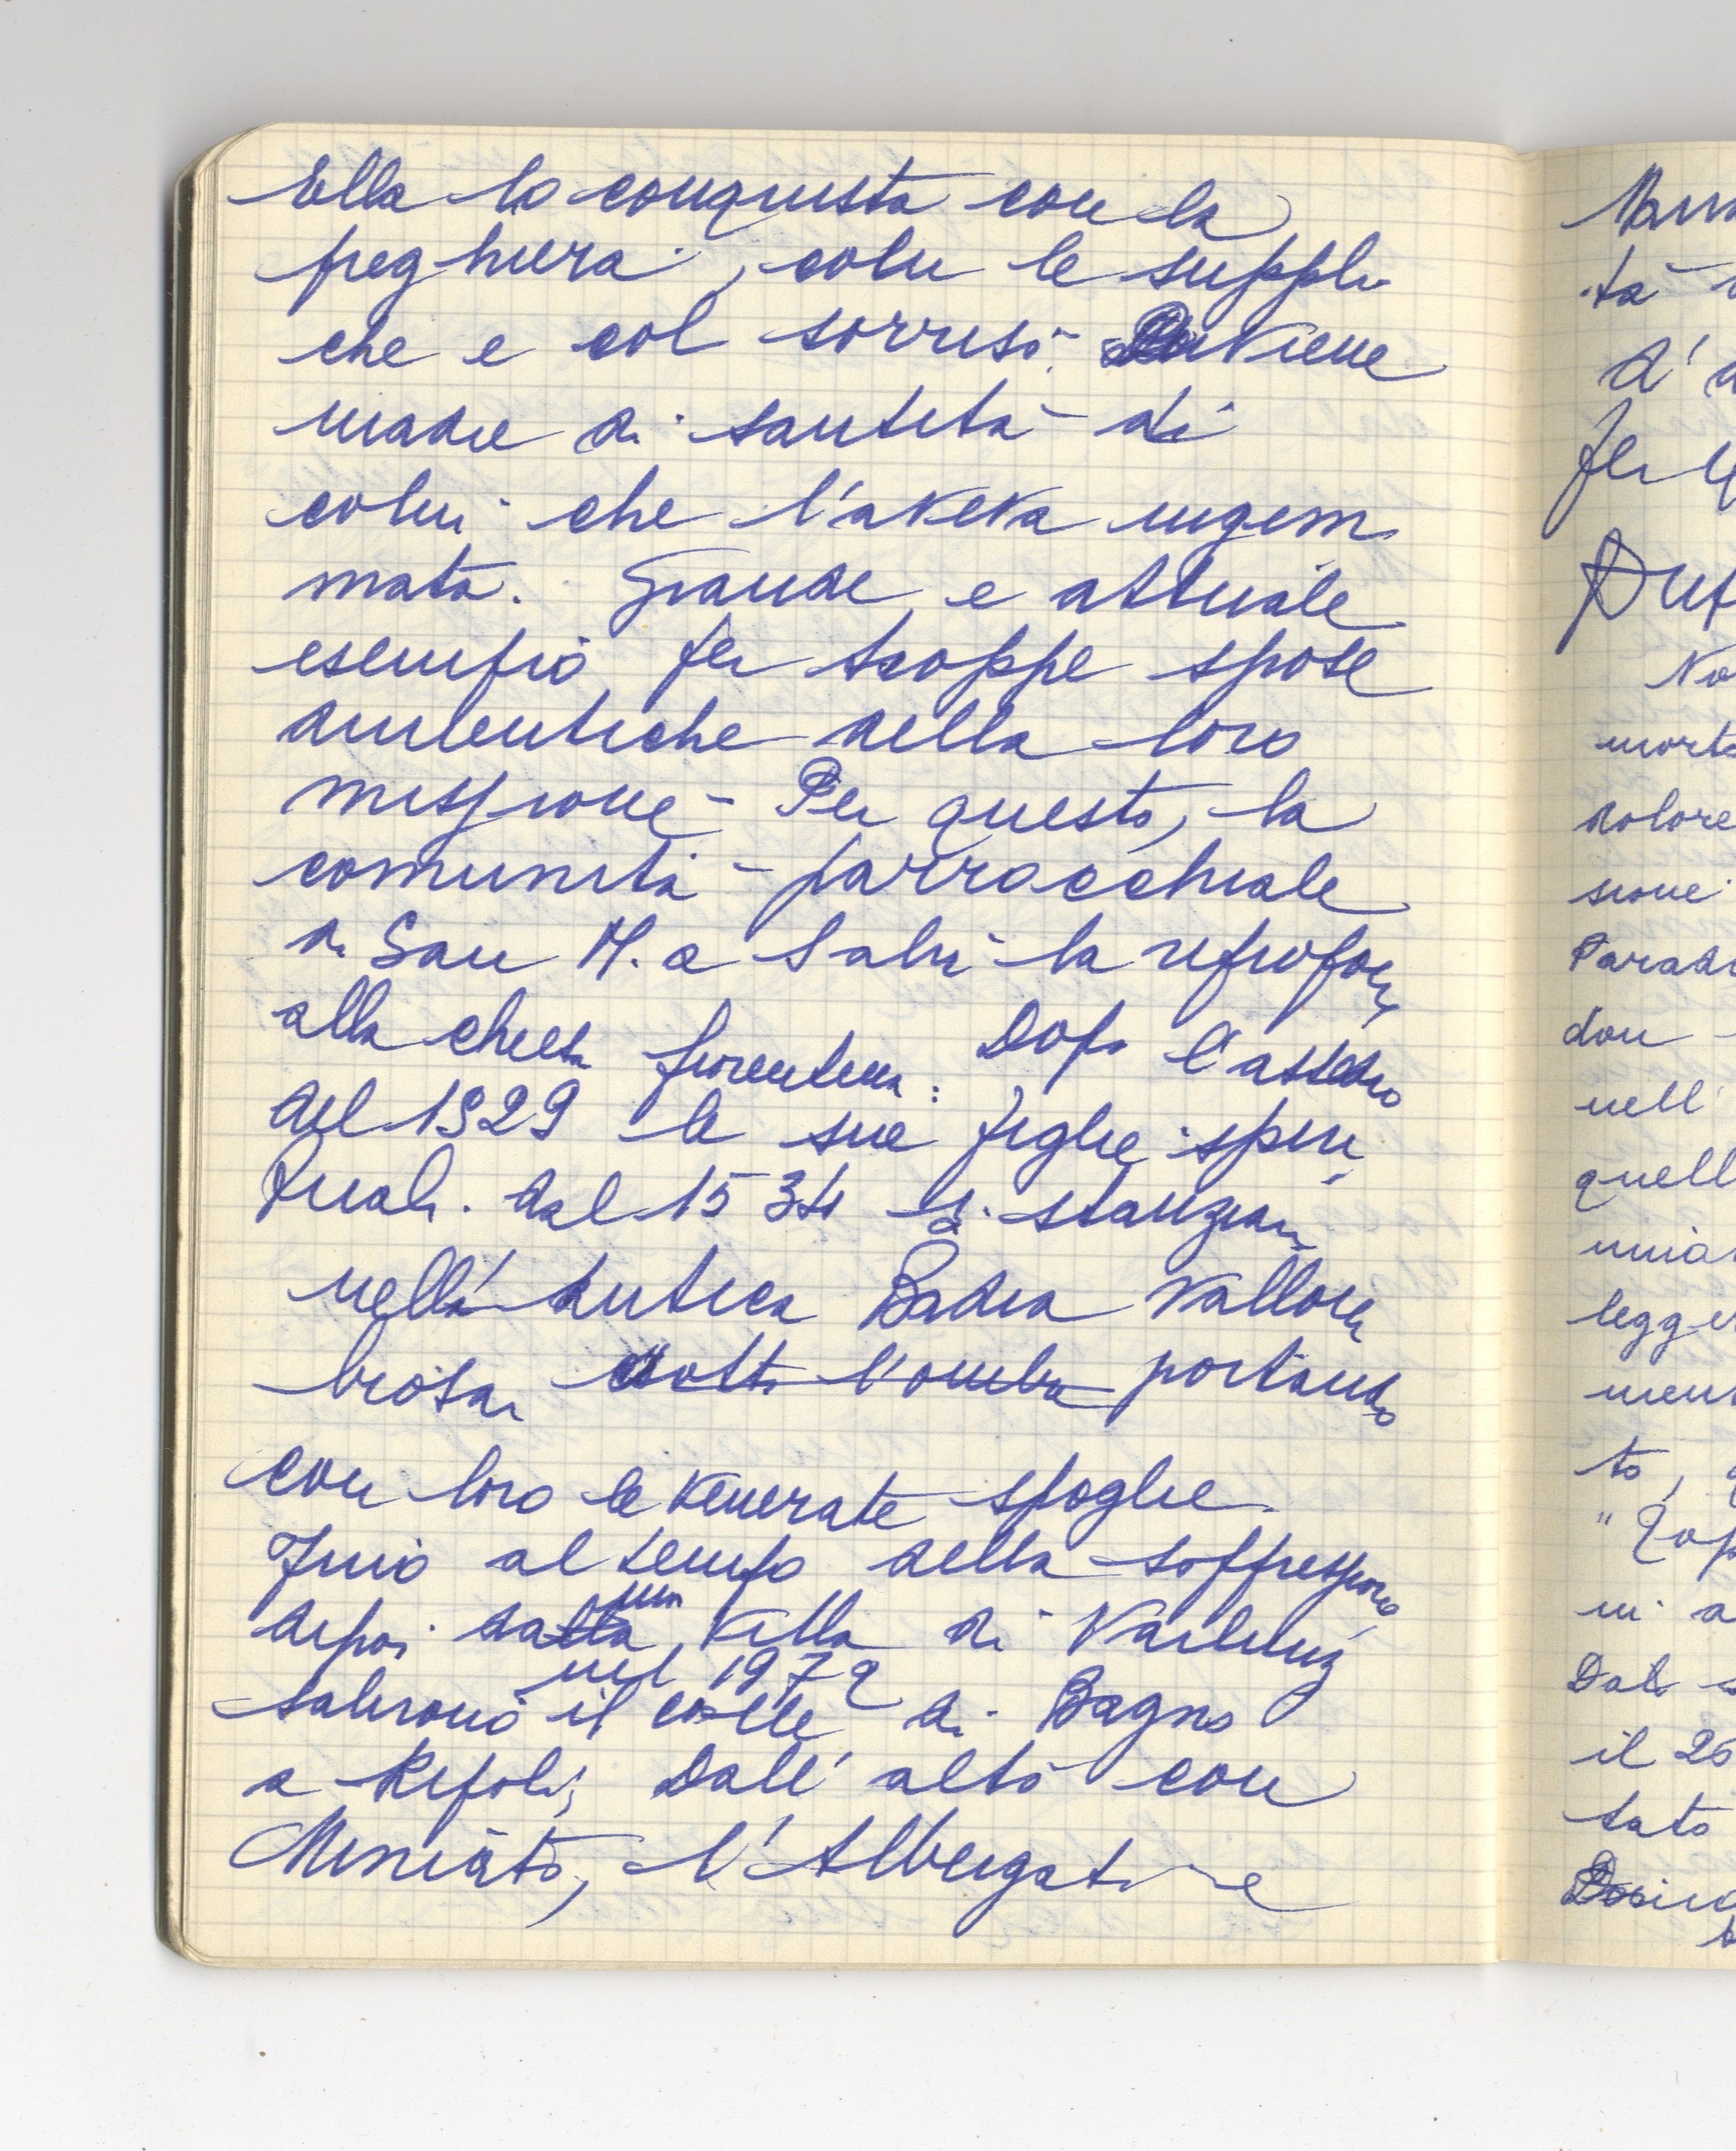 Ella lo conquista con la
preghiera, colle le suppli
che e col sorriso. Diviene
madre di santità di
colui che l'aveva ingem
mata. Grande e attuale
esempio per troppe spose
dimentiche della loro
missione - Per questo, la
comunità parrocchiale
di San M. a Salvi la ripropone
alla chiesa fiorentina: Dopo l'assedio
del 1529 le sue figlie spiri
tuali. dal 1534 si stanziano
nella antica Badia Vallom
brosan sotto l'ombra portando
con loro le venerate spoglie.
Fino al tempo della soppressione
dipoi dalla Villa di Varlungo
nel 1972
salirono il colle di Bagno
a Ripoli; Dall'alto con
Miniato, l'Albergati e
Nov
tà
d'
per
No
dolore
sione
don
nell'
quell
to,
ni a
Dal
il 26
tato